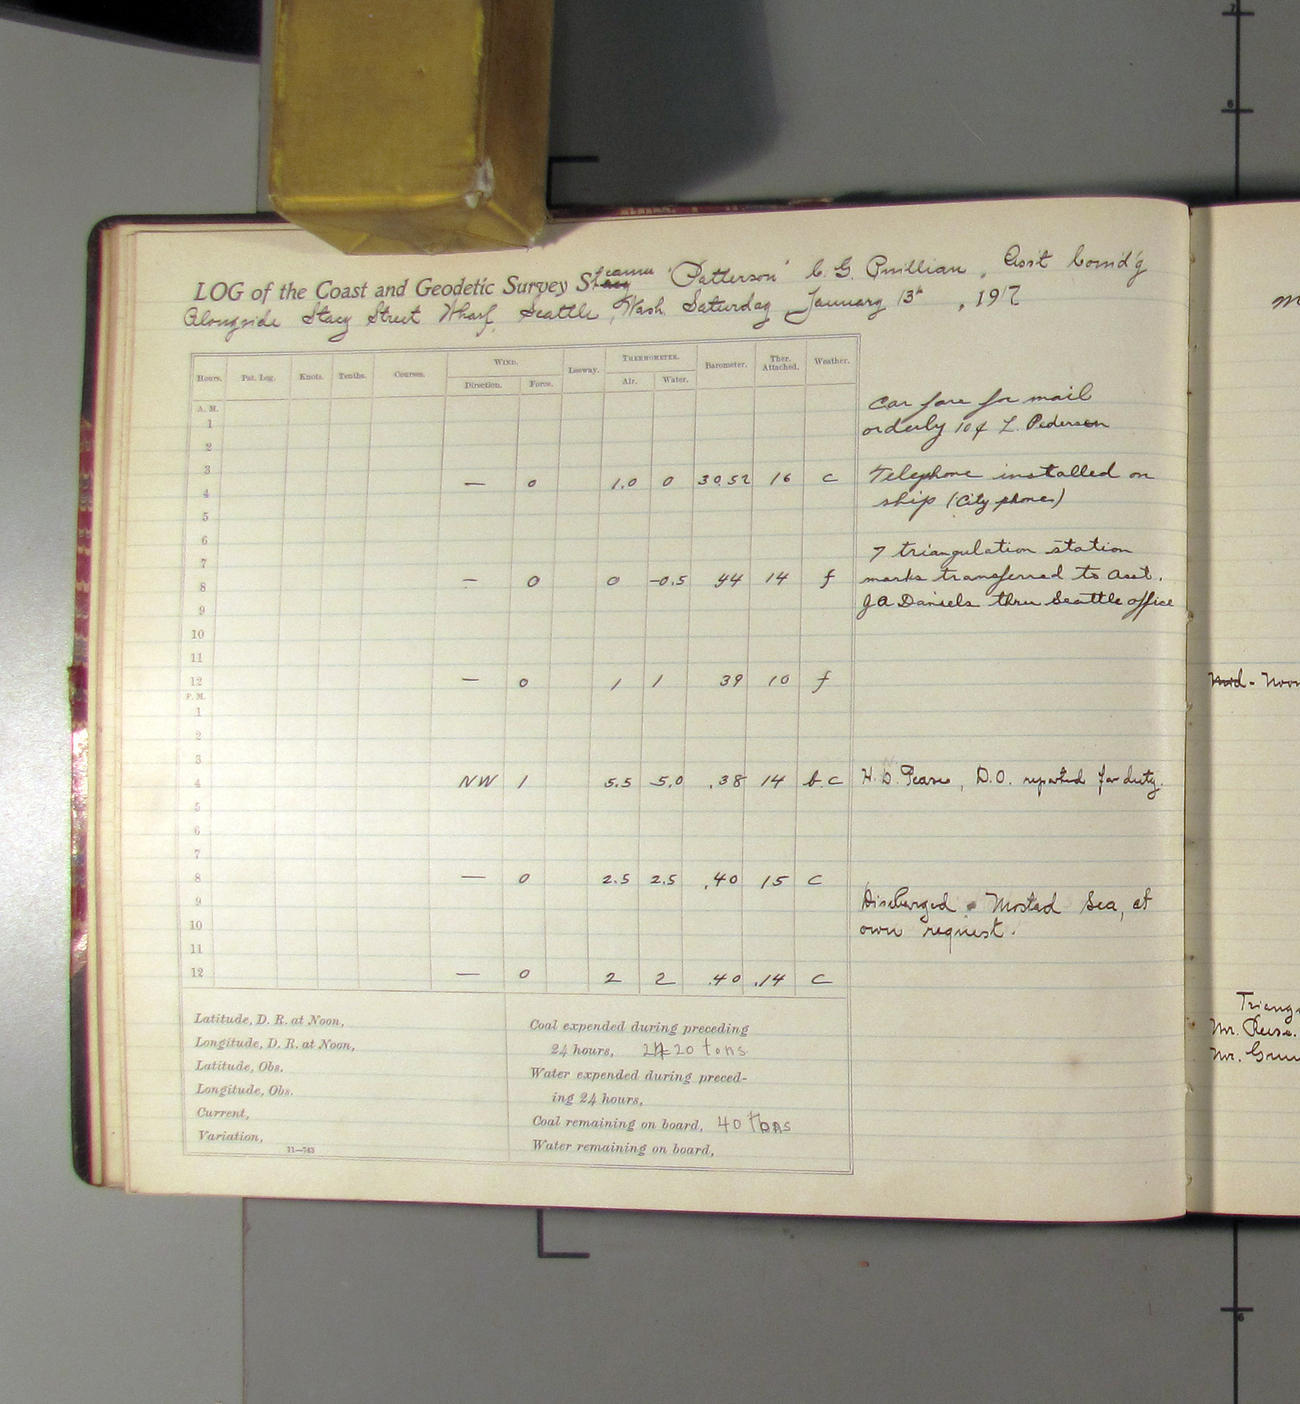 LOG of the Coast and Geodetic Survey Steamer "Patterson" C. G. Quillian, Ass't Comd'g
Alongside Stacy Street Wharf, Seattle, Wash. Saturday January 13th, 1917
Hours. Pat. Log. Knots. Tenths. Courses. WIND. Leeway. THERMOMETER. Barometer. Ther. Attached. Weather.
Direction. Force. Air. Water.
A. M.
1
2
3
4 — 0 1.0 0 30.52 16 c
5
6
7
8 — 0 0 -0.5 44 14 f
9
10
11
12 — 0 1 1 39 10 f
P. M.
1
2
3
4 NW 1 5.5 5.0 .38 14 b.c
5
6
7
8 — 0 2.5 2.5 .40 15 c
9
10
11
12 — 0 2 2 .40 .14 c
Car fare for mail
orderly 10¢ L. Pedersen
Telephone installed on
ship (City phones)
7 triangulation station
marks transferred to Asst.
J A Daniels thru Seattle office
H. Pearse, D.O. reported for duty.
Discharged Mostad Sea, at
own request.
Latitude, D. R. at Noon,
Longitude, D. R. at Noon,
Latitude, Obs.
Longitude, Obs.
Current,
Variation,
11—743
Coal expended during preceding
24 hours, 20 tons
Water expended during preced-
ing 24 hours,
Coal remaining on board, 40 tons
Water remaining on board,
M
Mid - Noon
Triang
Mr.
Mr.
7
8
6